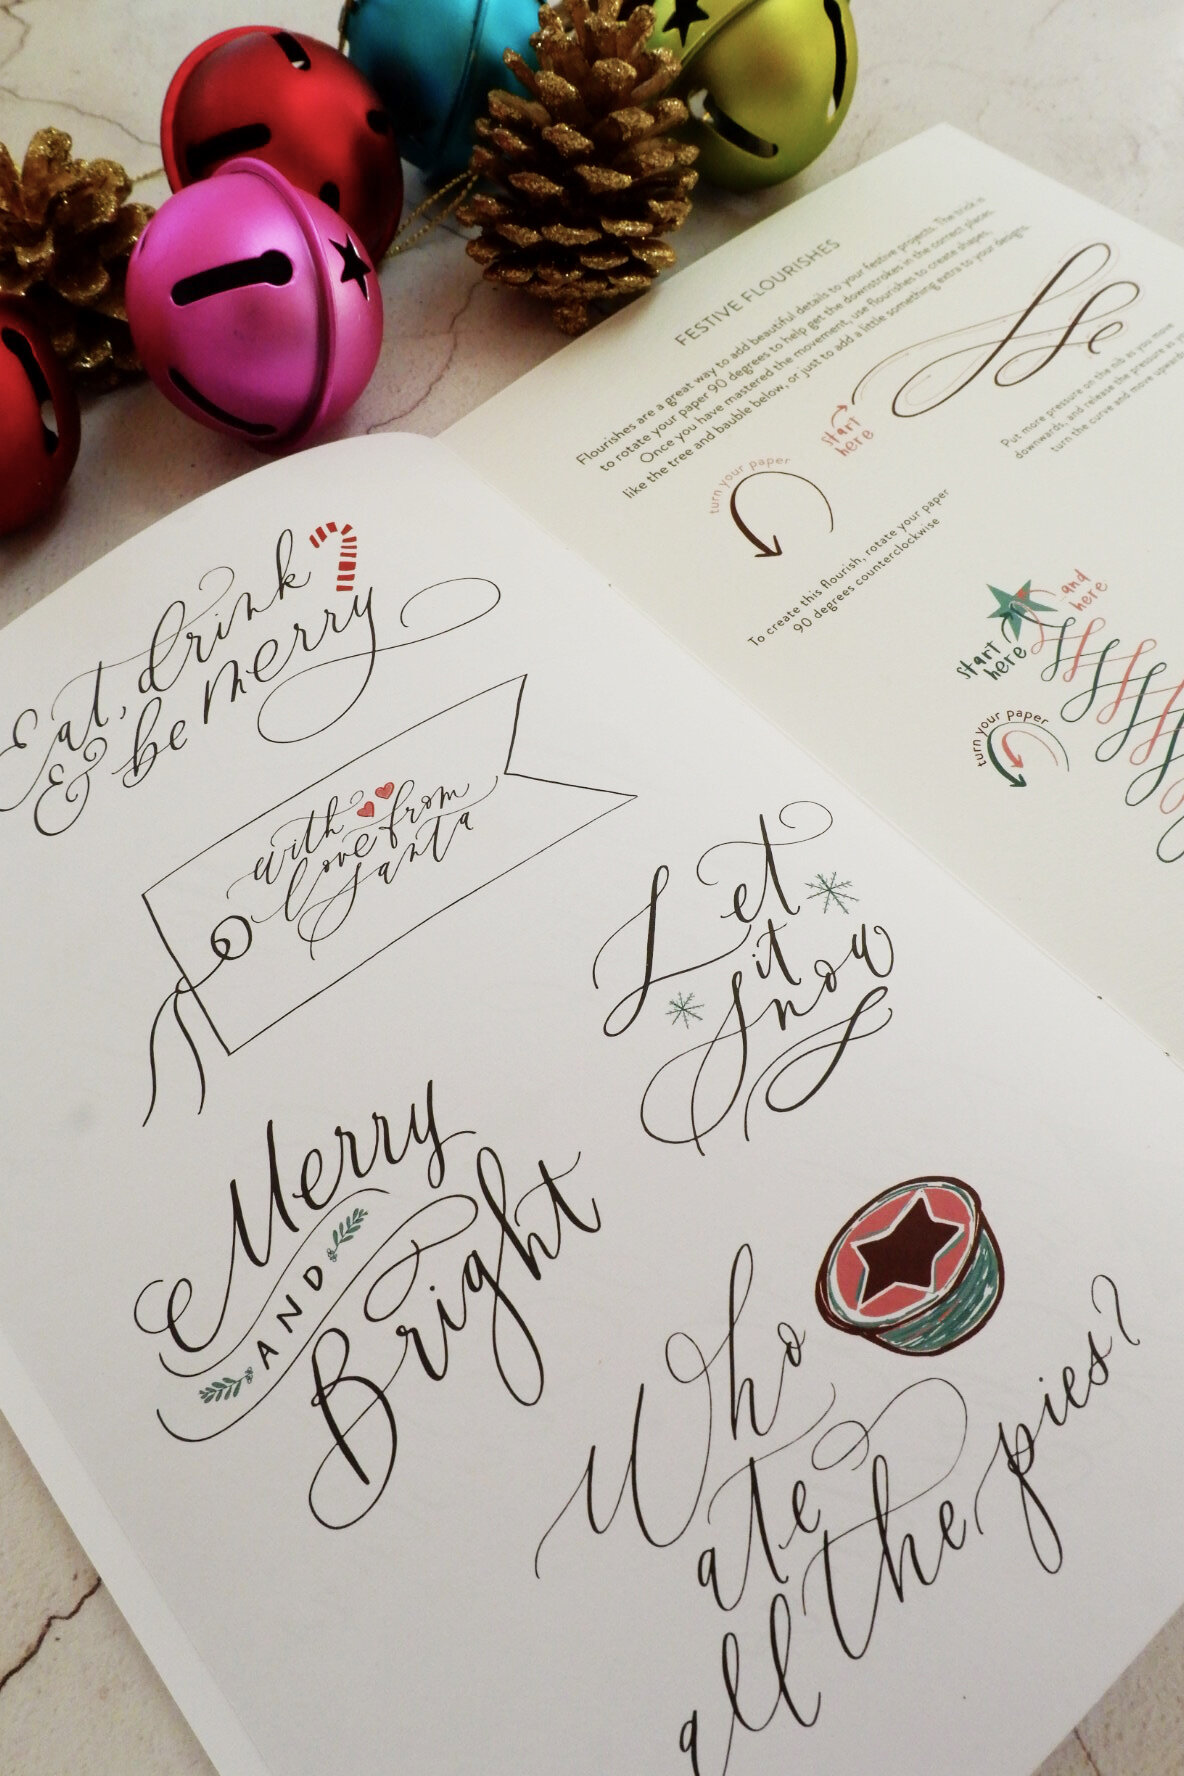 Eat, drink
& be merry
with
love from
santa
Let
it
snow
Merry
AND
Bright
Who
ate
all the pies?
FESTIVE FLOURISHES
Flourishes are a great way to add beautiful details to your festive projects. The trick is
to rotate your paper 90 degrees to help get the downstrokes in the correct places.
Once you have mastered the movement, use flourishes to create shapes,
like the tree and bauble below, or just to add a little something extra to your designs.
start
here
turn your paper
Put more pressure on the nib as you move
downwards, and release the pressure as
turn the curve and move upward
To create this flourish, rotate your paper
90 degrees counterclockwise
and
here
start
here
turn your paper